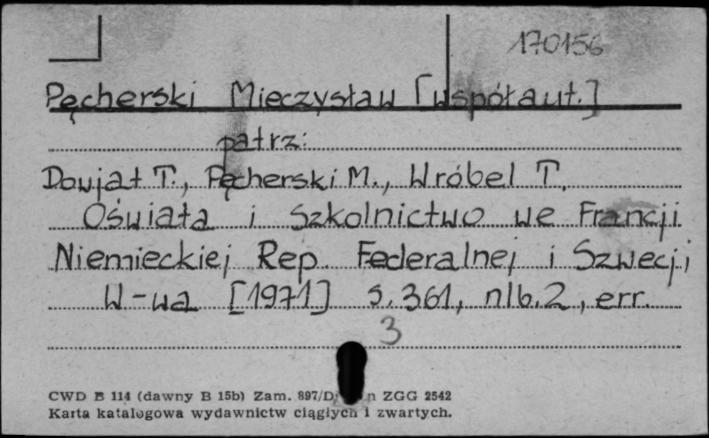 170156
Pęcherski Mieczysław [współaut.]
patrz:
Dowjat T., Pęcherski M., Wróbel T.
Oświata i szkolnictwo we Francji
Niemieckiej Rep. Federalnej i Szwecji
W-wa [1971] s. 361, nlb. 2, err.
3
CWD B 114 (dawny B 15b) Zam. 897/D n ZGG 2542
Karta katalogowa wydawnictw ciągłych i zwartych.